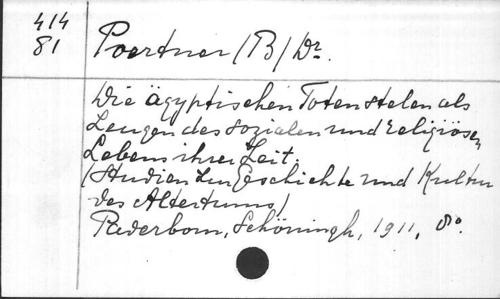 414
81
Poertner /B/ Dr.
Die ägyptischen Totenstelen als
Zeugen des sozialen und religiösen
Lebens ihrer Zeit.
/Studien zur Geschichte und Kultur
des Altertums/
Paderborn, Schöningh, 1911, 8o.